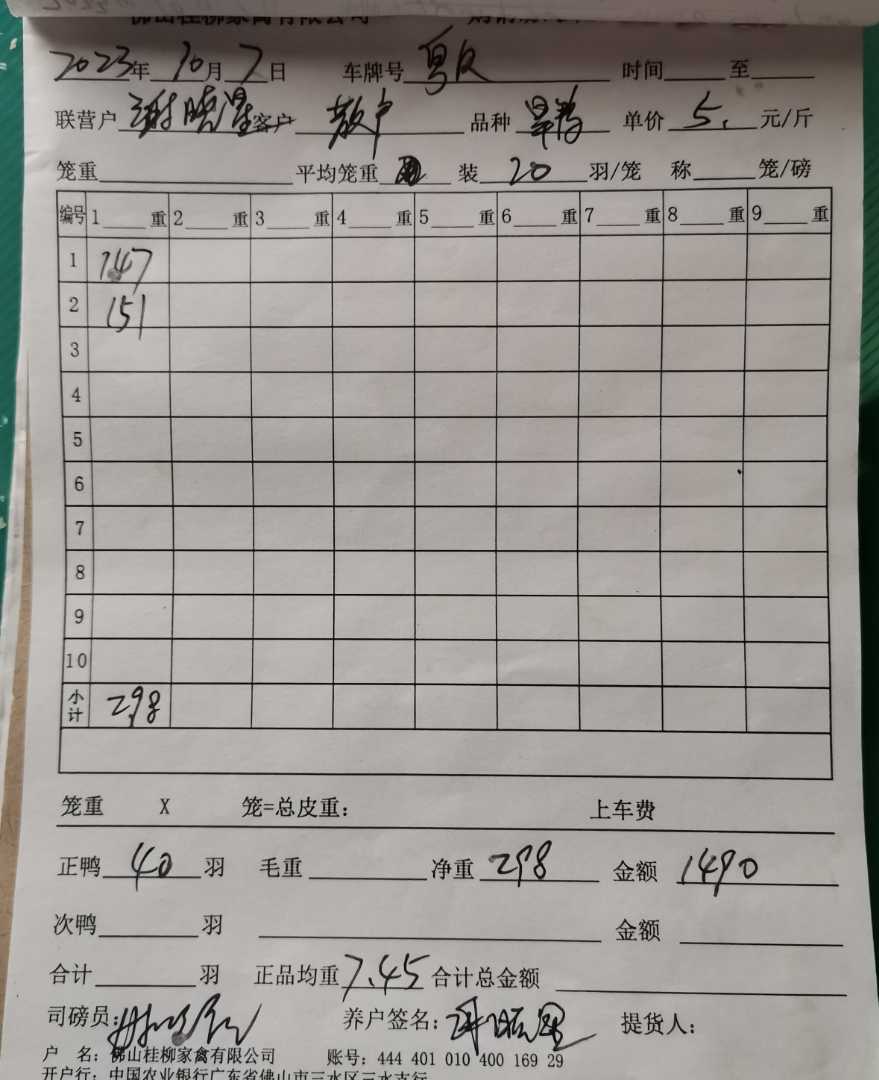 佛山桂柳家禽有限公司
2023年 10月 7日 车牌号 粤 时间 至
联营户 谢晓星 客户 散户 品种 单价 5. 元/斤
笼重 平均笼重 装 20 羽/笼 称 笼/磅
编号 1 重 2 重 3 重 4 重 5 重 6 重 7 重 8 重 9 重
1 147
2 151
3
4
5
6
7
8
9
10
小计 298
笼重 X 笼=总皮重: 上车费
正鸭 40 羽 毛重 净重 298 金额 1490
次鸭 羽 金额
合计 羽 正品均重 7.45 合计总金额
司磅员: 养户签名: 提货人:
户 名: 佛山桂柳家禽有限公司 账号: 444 401 010 400 169 29
开户行: 中国农业银行广东省佛山市三水区三水支行